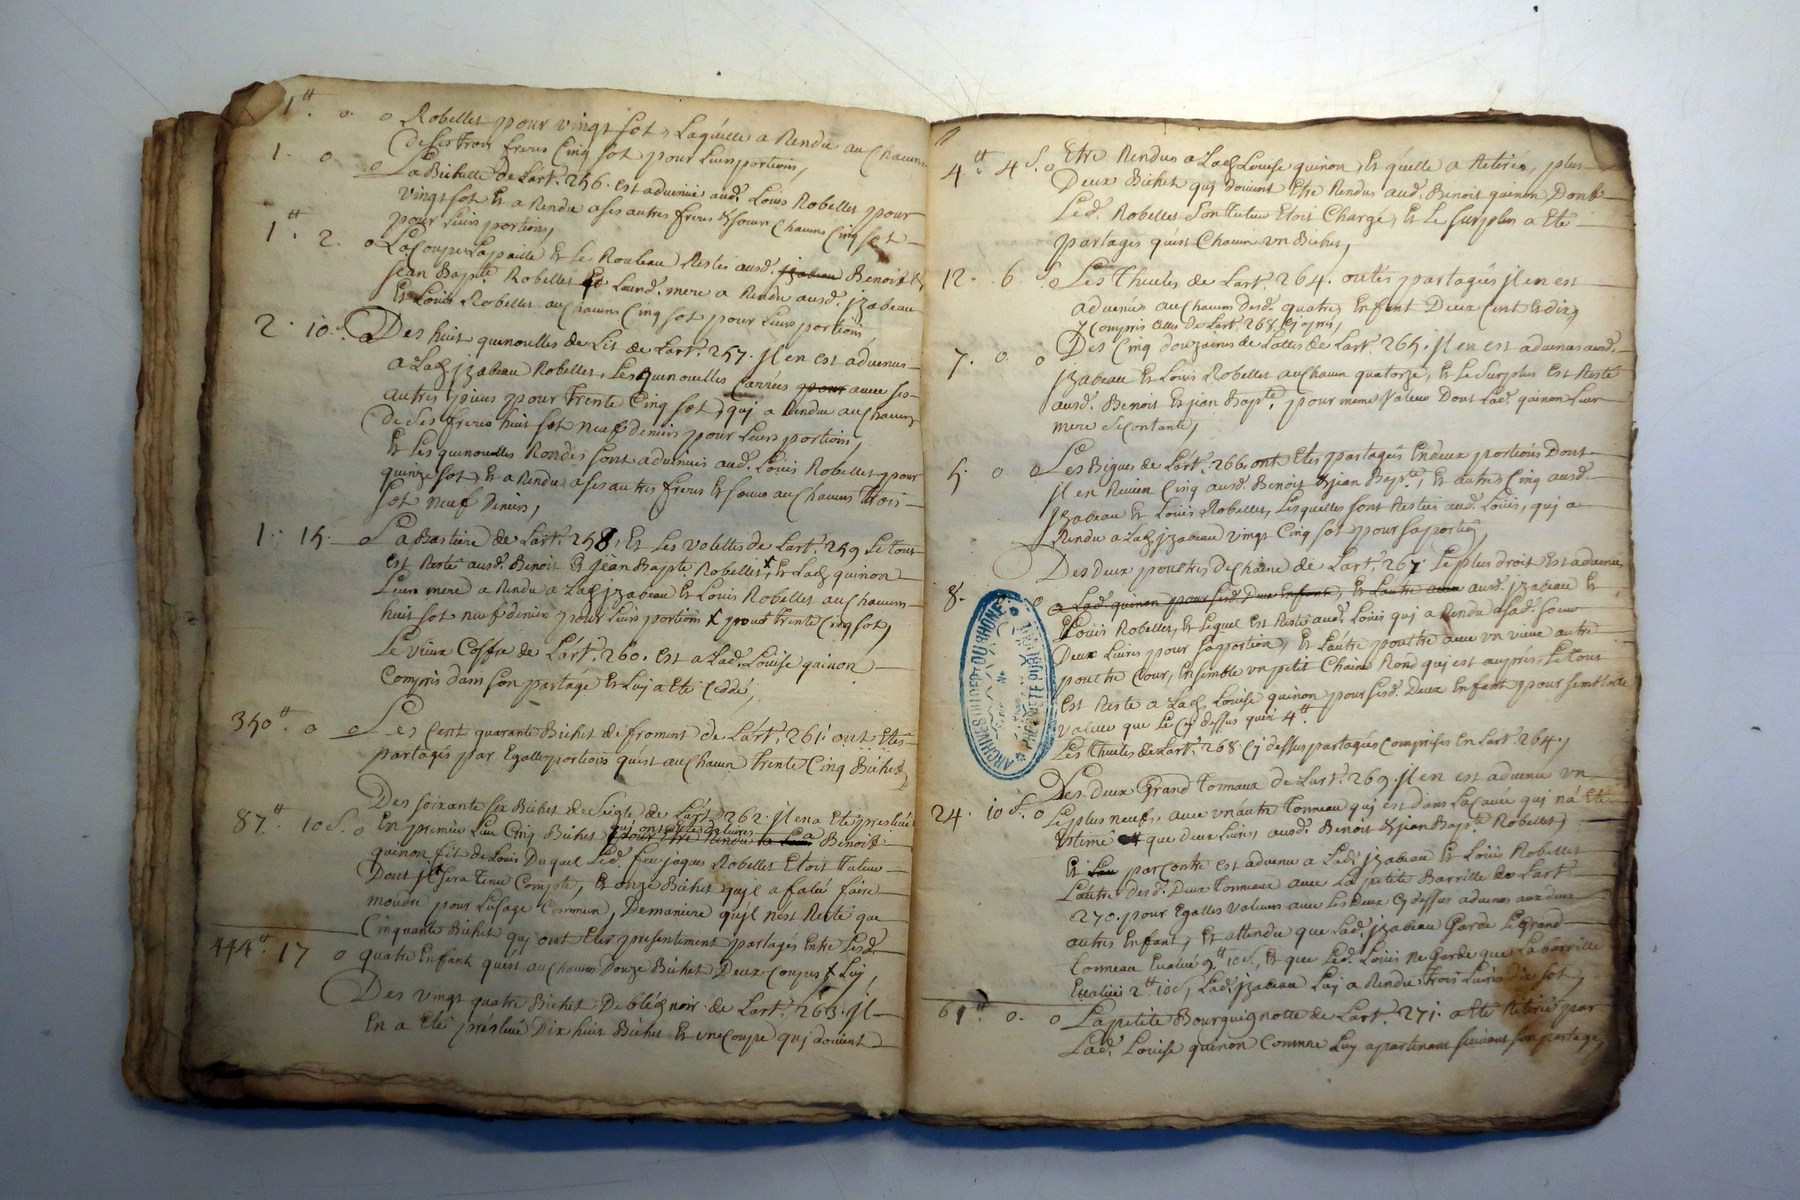 1ᵗᵗ. o. o Robellet pour vingt sot, Laquelle a Rendu au Chacuns
de ses trois freres Cinq sot pour Leurs portions,
1. o o La Bichette de L'art. 256. est advenüe aud. Louis Robellet pour
vingt sot Et a Rendu a ses autres freres & soeurs Chacuns Cinq sot
pour Leurs portions,
1ᵗᵗ. 2. o La Coupe La paille Et Le Rouleau Restés ausd. jzabeau Benoist &
jean Baptᵗᵉ Robellet Et Laurd. mere a Rendu ausd. jzabeau
Et Louis Robellet au Chacuns Cinq sot pour Leurs portions
2. 10.s. o Des huit quenouilles de Lit de L'art. 257. jl en est advenus
a Lad jzabeau Robellet, Les quenouilles Carrées pour avec ses
autres pieces pour Trente Cinq sot, qui a Rendu au Chacuns
de ses freres huit sot neuf deniers pour Leurs portions,
Et Les quenouilles Rondes sont advenües aud. Louis Robellet pour
quinze sot, Et a Rendu a ses autres freres Et soeurs au Chacuns trois
sot neuf deniers,
1. 15. o La Bastiere de L'art. 258, Et Les volettes de L'art. 259 Le tout
est Resté ausd. Benoist Et jean Baptᵉ Robellet x, Et Lad quinon
Leurs mere a Rendu a Lad jzabeau Et Louis Robellet au Chacuns
huit sot neuf denier pour Leurs portions x pour trente Cinq sot,
Le vieux Coffre de L'art. 260. est a Lad. Louise quinon
Compris dans son partage Et Luy a Eté Ceddé,
350ᵗᵗ o o Les Cent quarante Bichet de froment de L'art. 261. ont Etés
partagés par Egalles portions qu'est au Chacun Trente Cinq Bichet,
Des soixante six Bichet de Seigle de L'art. 262. jl en a Eté preslevé
87ᵗᵗ. 10 s. o En premier Lieu Cinq Bichet qui ont Etés délivrés pour être Rendu a Benoist
quinon fils de Louis Duquel Led. feu jaques Robellet Etoit tuteur
Dont jl sera tenu Compte, Et onze Bichet qu'jl a falu faire
moudre pour L'usage Commun, De maniere qu'jl n'est Resté que
Cinquante Bichet qui ont Etes presentement partagés Entre Lesd.
444ᵗᵗ. 17 o quatre Enfants qu'est au Chacuns Douze Bichet Deux Coupes &
Des vingt quatre Bichet De bléd noir de L'art. 263. jl
En a Eté preslevé Dix huit Bichet Et une Coupe qui doivent
4ᵗᵗ. 4 s. o Etre Rendus a Lad Louise quinon, Et qu'elle a Retirés, plus
Deux Bichet qui doivent Etre Rendus aud. Benoist quinon Dont
Led. Robellet son tuteur Etoit Chargé, Et Le surplus a Eté
partagés qu'est Chacun un Bichet,
12. 6. s. o Les Thuiles de L'art. 264. ont étés partagés jl en est
advenües au Chacuns desd. quatres Enfant Deux Cent Et dix,
y Compris Celles de L'art. 268 Cy apres,
7. o o Des Cinq douzaines de Lattes de L'art. 265. jl en est advenus ausd.
jzabeau Et Louis Robellet au Chacun quatorze, Et Le Surplus Est Resté
ausd. Benoist Et jean Baptᵗᵉ, pour meme Valeur Dont Lad. quinon Leur
mere se Contante,
5 o o Les Bigues de L'art. 266. ont Etes partagés En deux portions Dont
jl en Revien Cinq ausd. Benoist & jean Baptᵗᵉ, Et autres Cinq ausd.
jzabeau Et Louis Robellet, Lesquelles sont Restées aud. Loüis, qui a
Rendu a Lad jzabeau vingt Cinq sot pour sa portion,
Des deux poutres de Chaine de L'art. 267 Le plus droit est advenu
8. o a Lad. quinon pour sesd. Deux Enfants, Et L'autre avec ausd. jzabeau Et
Louis Robellet, Et Lequel Est Resté aud. Louis qui a Rendu a Sad. soeur
Deux Livres pour sa portion, Et L'autre pouttre avec un vieux autre
pouttre Cour, Ensemble un petit Chaine Rond qui est auprés, Le tout
Est Resté a Lad. Louise quinon pour sesd. Deux Enfants pour semblable
valeur que Le Cy dessus qu'est 4ᵗᵗ.
Les Thuiles de L'art. 268. Cj dessus partagées Comprises En L'art. 264.,
Des deux Grand tonneaux de L'art. 269. jl en est advenu un
24. 10 s. o Le plus neuf, avec un autre Tonneau qui est dans La Cave qui n'a Eté
Estimé que deux Livres, ausd. Benoist & jean Baptᵗᵉ Robellet,
Et par Contre est advenu a Lesd. jzabeau Et Loüis Robellet
L'autre desd. Deux tonneaux avec La petite Barrille de L'art.
270. pour Egalles valeurs avec Les deux Cy dessus advenus aux deux
autres Enfant, Et attendu que Lad. jzabeau Garde Le Grand
tonneau Evalué 9ᵗᵗ 10 s, Et que Led. Louis ne Garde que La barrille
Evaluée 2ᵗᵗ 10 s, Lad. jzabeau Luy a Rendu trois Livres dix sot,
61ᵗᵗ o. o La petite Bourguignotte de L'art. 271. a Eté Retirée par
Lad. Louise quinon Comme Luy apartenant suivant son partage,
ARCHIVES DU DEPT DU RHONE
PROPRIETE PUBLIQUE